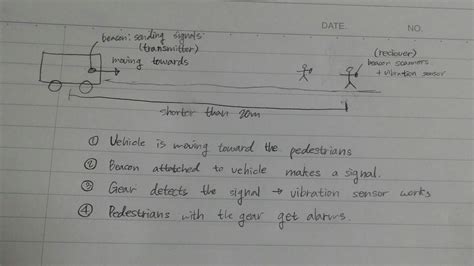 DATE. NO.
beacon: sending signals
(transmitter)
moving towards
(reciever)
beacon scanners
+ vibration sensor
shorter than 20m
① Vehicle is moving toward the pedestrians
② Beacon attatched to vehicle makes a signal.
③ Gear detects the signal → vibration sensor works
④ Pedestrians with the gear get alarms.